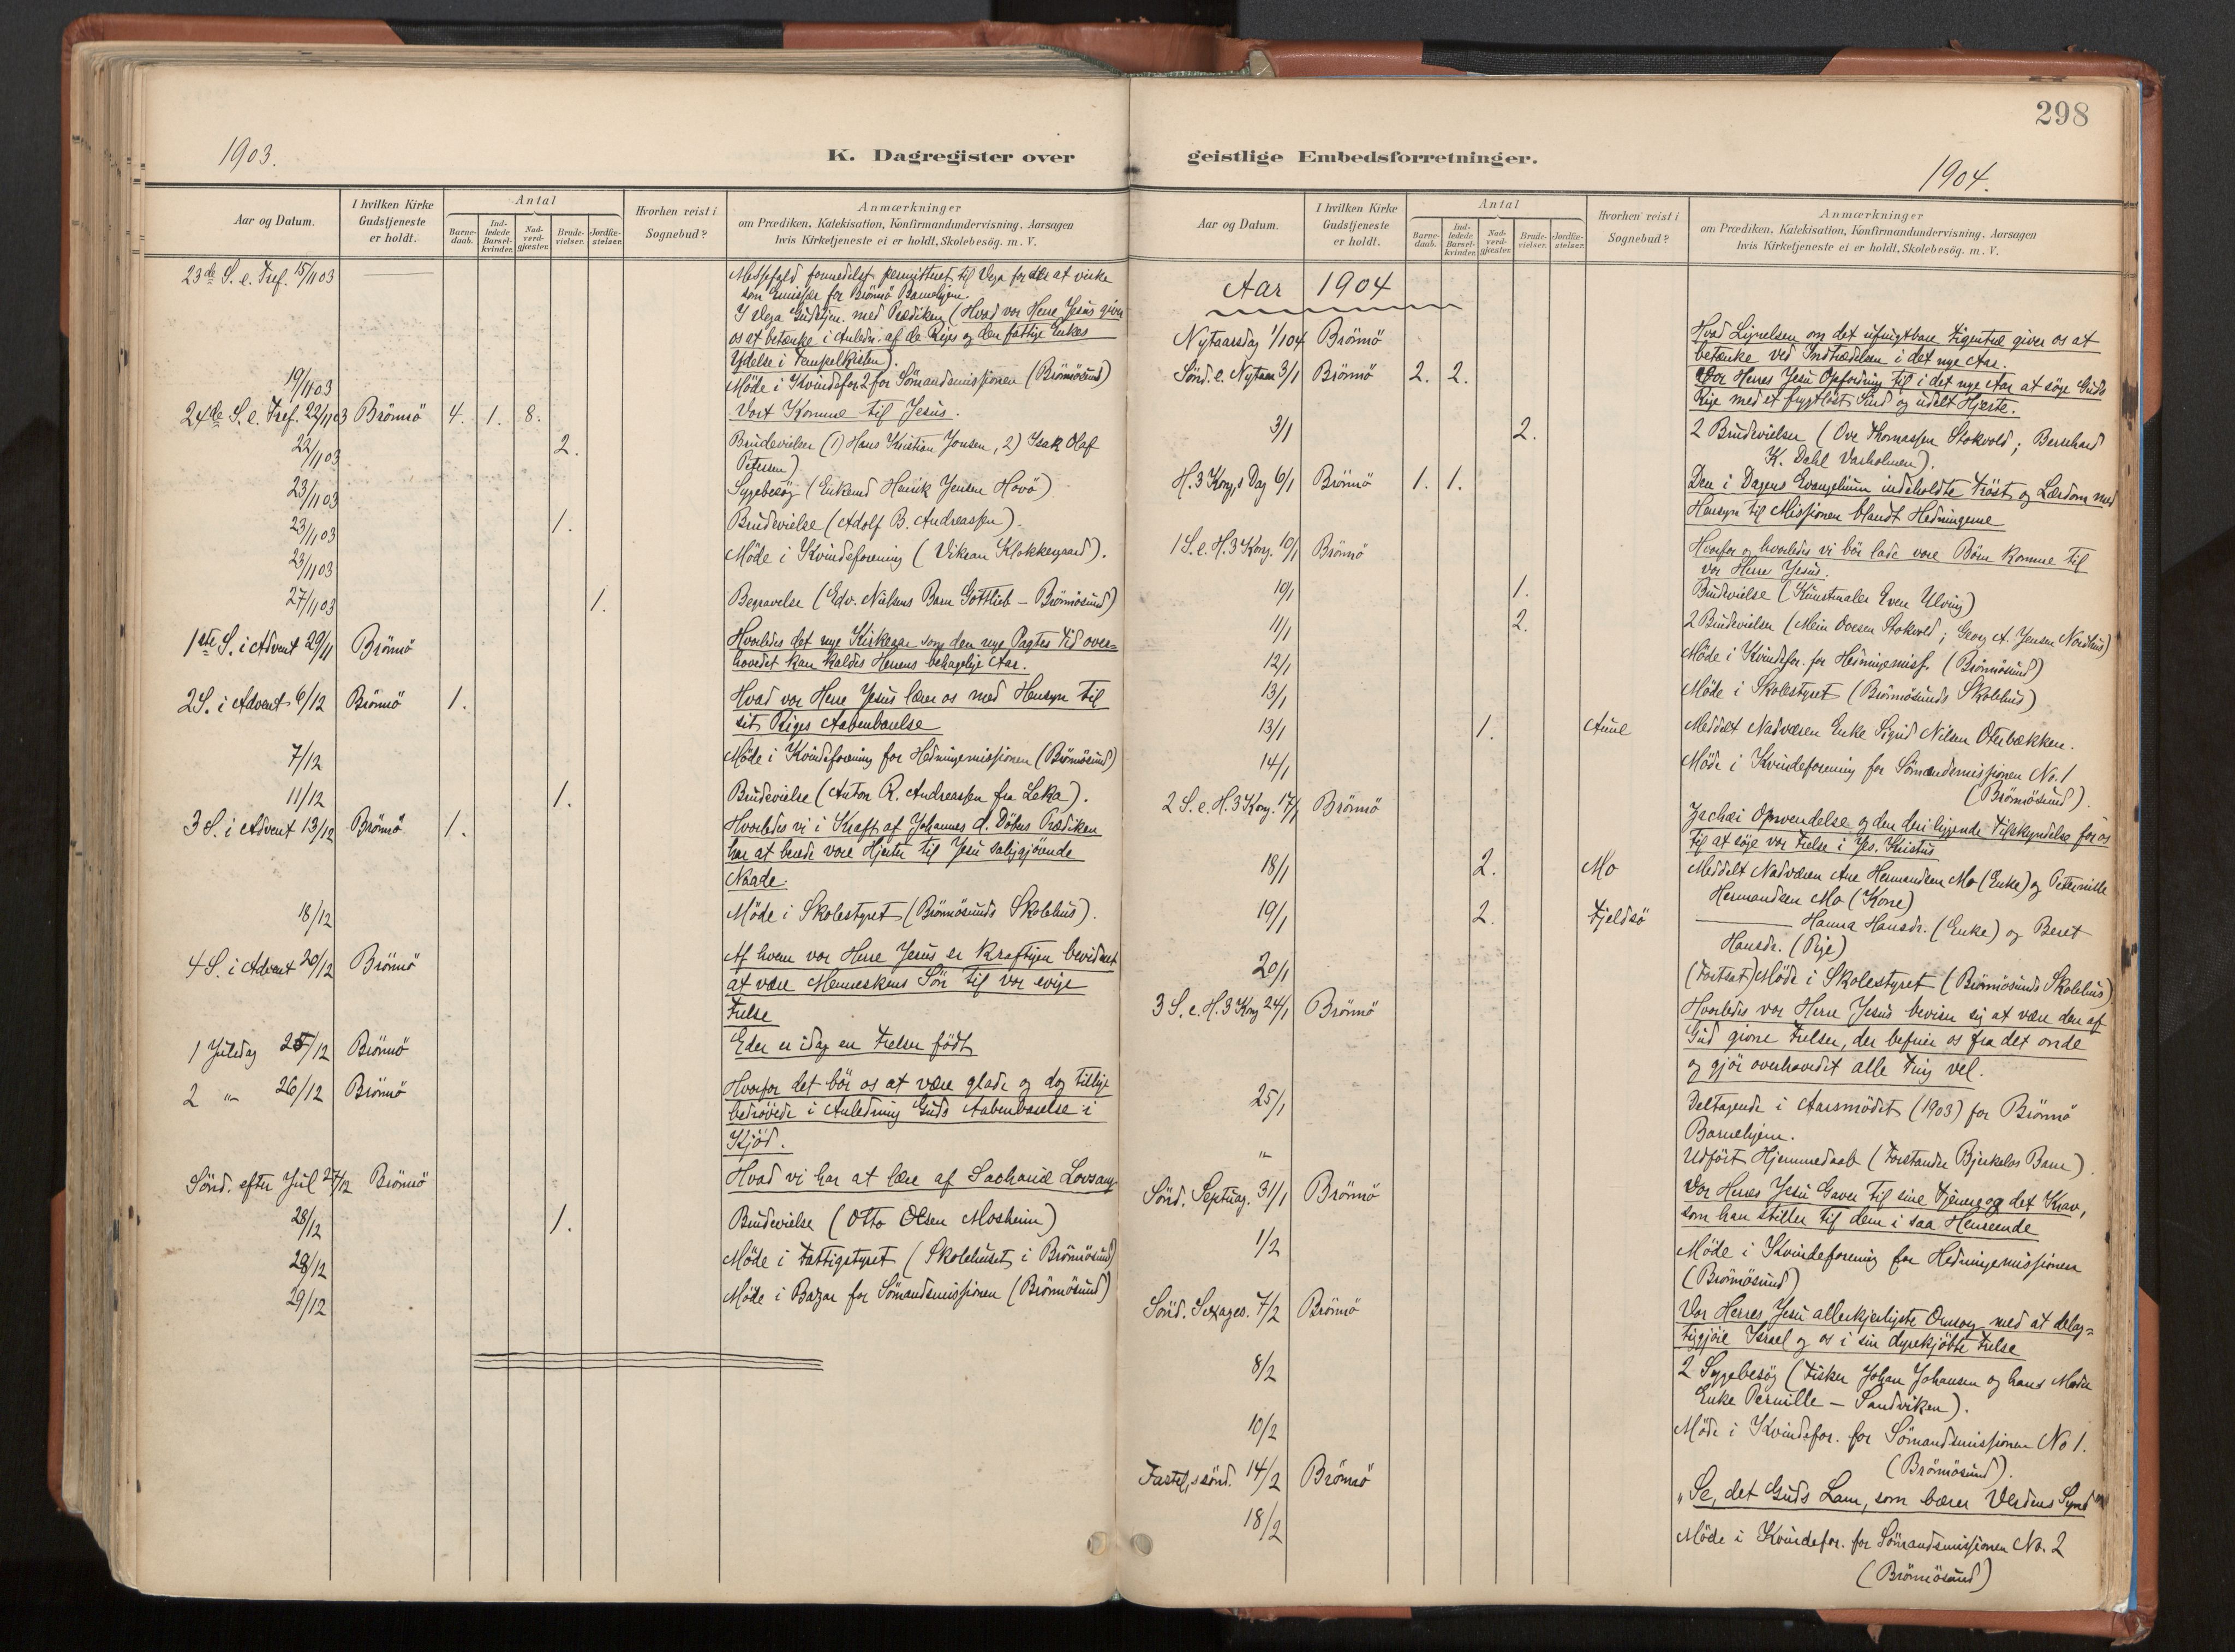 298
1903.
K. Dagregister over
Aar og Datum.
I hvilken Kirke
Gudstjeneste
er holdt.
Antal
Barne-
daab.
Ind-
ledede
Barsel-
kvinder.
Nad-
verd-
gjester.
Brude-
vielser.
Jordfæ-
stelser.
Hvorhen reist i
Sognebud?
Anmærkninger
om Prædiken, Katekisation, Konfirmandundervisning, Aarsagen
hvis Kirketjeneste ei er holdt, Skolebesög. m. V.
23de S. e. Tref. 15/11 03
Messefald formedelst permitteret til Vega for der at virke
som Emissær for Brönnö Barnehjem.
I Vega Gudstjen. med Prædiken (Hvad vor Herre Jesus giver
os at betænke i Anledn. af de Riges og den fattige Enkes
Ydelse i Tempelkisten).
19/11 03 Möde i Kvindefor. 2 for Sömandsmissjonen (Brönnösund)
24de S. e. Tref. 22/11 03 Brönnö 4. 1. 8. Vort Komme til Jesus.
22/11 03 2. Brudevielser (1) Hans Kristian Jonsen, 2) Isak Olaf
Petersen)
23/11 03 Sygebesög (Enkemd Henrik Jensen Hovö)
23/11 03 1. Brudevielse (Adolf B. Andreassen).
23/11 03 Möde i Kvindeforening (Vikran Klokkergaard).
27/11 03 1. Begravelse (Edv. Nielsens Barn Gottlieb – Brönnösund)
1ste S. i Advent 29/11 Brönnö Hvorledes det nye Kirkeaar som den nye Pagtes Tid over=
hovedet kan kaldes Herrens behagelige Aar.
2 S. i Advent 6/12 Brönnö 1. Hvad vor Herre Jesus lærer os med Hensyn til
sit Riges Aabenbarelse
7/12 Möde i Kvindeforening for Hedningemissjonen (Brönnösund)
11/12 1. Brudevielse (Anton R. Andreassen fra Leka).
3 S. i Advent 13/12 Brönnö 1. Hvorledes vi i Kraft af Johannes d. Döbers Prædiken
har at berede vore Hjerter til Jesu saliggjörende
Naade.
18/12 Möde i Skolestyret (Brönnösunds Skolehus).
4 S. i Advent 20/12 Brönnö Af hvem vor Herre Jesus er kraftigen bevidnet
at være Menneskens Sön til vor evige
Frelse
1 Juledag 25/12 Brönnö Eder er idag en Frelser födt
2 " 26/12 Brönnö Hvorfor det bör os at være glade og dog tillige
bedrövede i Anledning Guds Aabenbarelse i
Kjöd.
Sönd. efter Jul 27/12 Brönnö Hvad vi har at lære af Sacharie Lovsang
28/12 1. Brudevielse (Otto Olsen Mosheim)
28/12 Möde i Fattigstyret (Skolehuset i Brönnösund)
29/12 Möde i Bazar for Sömandsmissjonen (Brönnösund)
geistlige Embedsforretninger.
1904.
Aar og Datum.
I hvilken Kirke
Gudstjeneste
er holdt.
Antal
Barne-
daab.
Ind-
ledede
Barsel-
kvinder.
Nad-
verd-
gjester.
Brude-
vielser.
Jordfæ-
stelser.
Hvorhen reist i
Sognebud?
Anmærkninger
om Prædiken, Katekisation, Konfirmandundervisning, Aarsagen
hvis Kirketjeneste ei er holdt, Skolebesög. m. V.
Aar 1904
Nytaarsdag 1/1 04 Brönnö Hvad Lignelsen om det ufrugtbare Figentræ giver os at
betænke ved Indtrædelsen i det nye Aar.
Sönd. e. Nytaar 3/1 Brönnö 2. 2. Vor Herres Jesu Opfordring til i det nye Aar at söge Guds
Rige med et frygtlöst Sind og udelt Hjerte.
3/1 2. 2 Brudevielser (Ove Thomassen Stokvold; Bernhard
K. Dahl Vasholmen).
H. 3 Kong.s Dag 6/1 Brönnö 1. 1. Den i Dagens Evangelium indeholdte Tröst og Lærdom med
Hensyn til Missjonen blandt Hedningerne
1 S. e. H. 3 Kong. 10/1 Brönnö Hvorfor og hvorledes vi bör lade vore Börn komme til
vor Herre Jesus.
10/1 1. Brudevielse (Kunstmaler Even Ulving)
11/1 2. 2 Brudevielser (Mein Ovesen Stokvold; Georg A. Jensen Nordhus)
12/1 Möde i Kvindefor. for Hedningemiss. (Brönnösund)
13/1 Möde i Skolestyret (Brönnösunds Skolehus)
13/1 1. Aune Meddelt Nadveren Enke Sigrid Nilsen Oterbækken.
14/1 Möde i Kvindeforening for Sömandsmissjonen No. 1
(Brönnösund).
2 S. e. H. 3 Kong. 17/1 Brönnö Zachæi Omvendelse og den deri liggende Tilskyndelse for os
til at söge vor Frelse i Jes. Kristus
18/1 2. Mo Meddelt Nadveren Ane Hermandsen Mo (Enke) og Peternille
Hermandsen Mo (Kone)
19/1 2. Fjeldsö ——— Hanna Hansdr. (Enke) og Beret
Hansdr. (Pige)
20/1 (Fortsat) Möde i Skolestyret (Brönnösunds Skolehus)
3 S. e. H. 3 Kong 24/1 Brönnö Hvorledes vor Herre Jesus beviser sig at være den af
Gud givne Frelser, der befrier os fra det onde
og gjör overhovedet alle Ting vel.
25/1 Deltagende i Aarsmödet (1903) for Brönnö
Barnehjem.
" Udfört Hjemmedaab (Forstander Bjerkelos Barn).
Sönd. Septuag. 31/1 Brönnö Vor Herres Jesu Gaver til sine Tjenere og det Krav,
som han stiller til dem i saa Henseende
1/2 Möde i Kvindeforening for Hedningemissjonen
(Brönnösund)
Sönd. Sexages. 7/2 Brönnö Vor Herres Jesu allerkjærligste Omsorg med at delag=
tiggjöre Israel og os i sin dyrekjöbte Frelse
8/2 2 Sygebesög (Fisker Johan Johansen og hans Moder
Enke Pernille – Sandviken).
10/2 Möde i Kvindefor. for Sömandsmissjonen No 1.
(Brönnösund).
Fastel.ssönd. 14/2 Brönnö „Se, det Guds Lam, som bærer Verdens Synd"
18/2 Möde i Kvindefor. for Sömandsmissjonen No. 2
(Brönnösund)